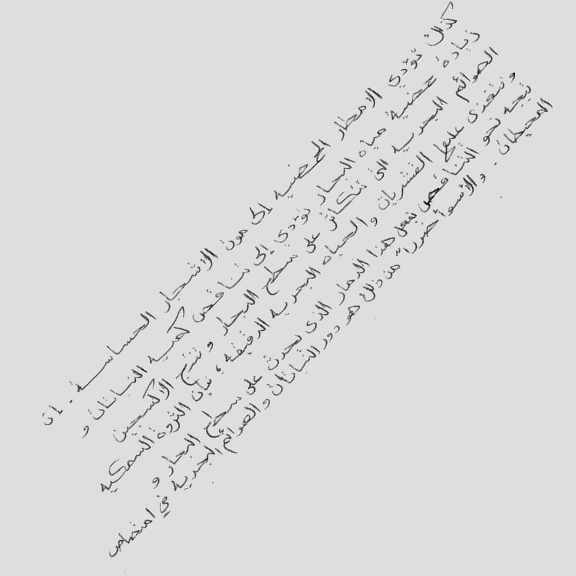 كذلك تؤدى الامطار الحمضيه الى موت الاشجار الحساسه . ان
زيادة حمضية مياه البحار تؤدى الى تناقص كميه النباتات و
الصوائم البحريه التى تتكاثر على سطح البحار وتنتج الاكسجين
وتتغذى عليها القشريات والحياه البحريه الدقيقه ، فان الثروه السمكيه
تتجه نحو التناقص بفعل هذا الدمار الذى يحدث على سطح البحار و
المحيطات . والاسوأ ضررا من ذلك هو دور النباتات والصوائم البحريه في امتصاص